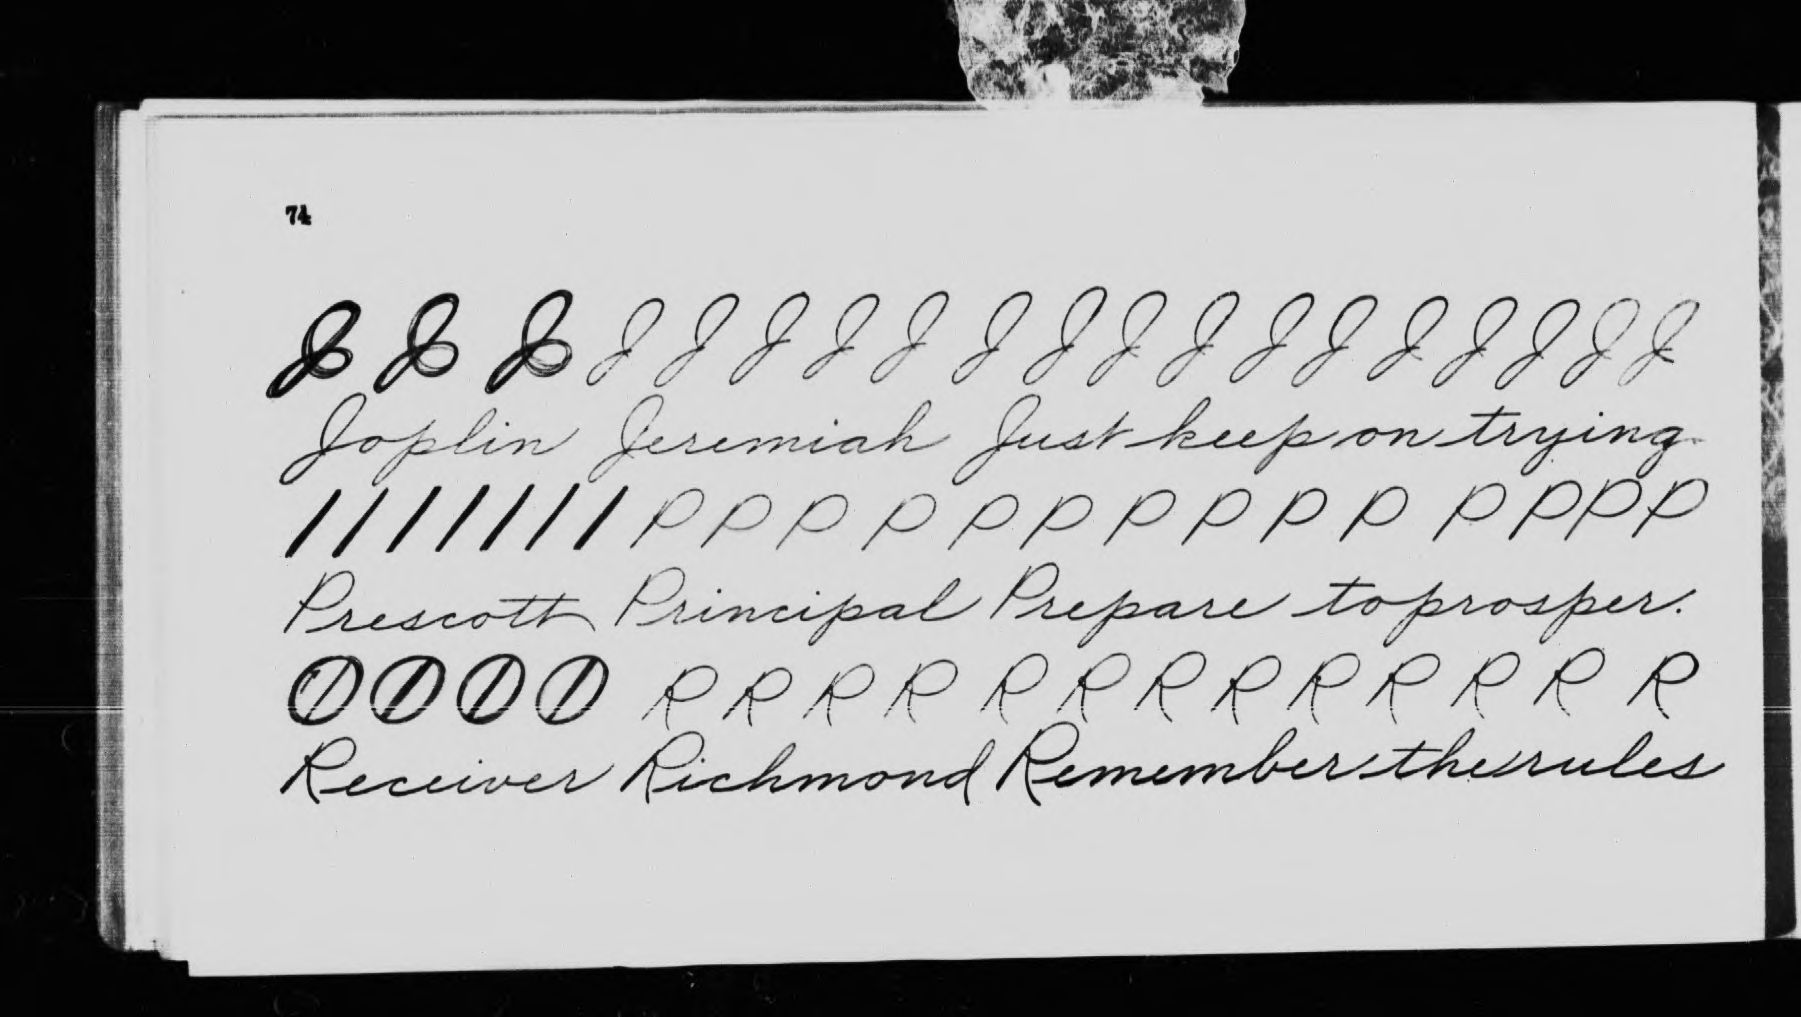 74
J J J J J J J J J J J J J J J J J J J
Joplin Jeremiah Just keep on trying.
/ / / / / / / P P P P P P P P P P P P P P
Prescott Principal Prepare to prosper.
R R R R R R R R R R R R R
Receiver Richmond Remember the rules